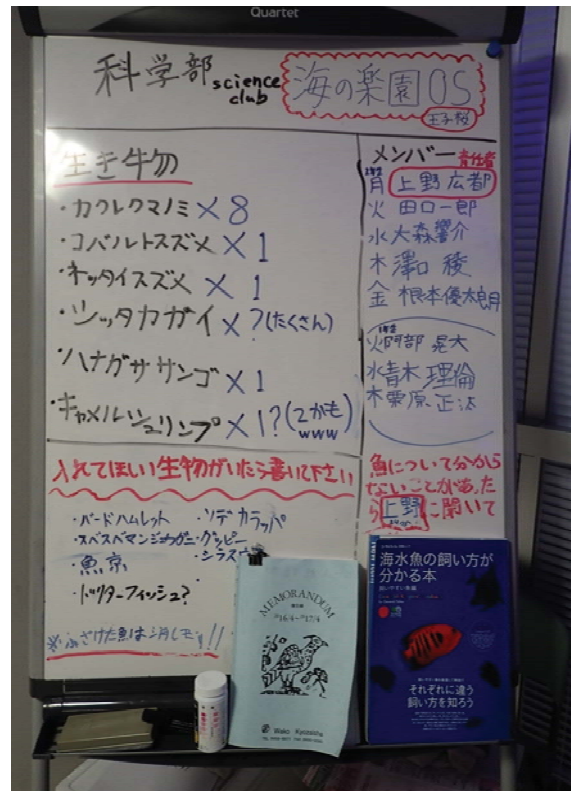 Quartet
科学部 science club
海の楽園OS
生き物
・カクレクマノミ×8
・コバルトスズメ×1
・ネッタイスズメ×1
・シッタカガイ×?(たくさん)
・ハナガササンゴ×1
・キャメルシュリンプ×1?(2かも www
メンバー 責任者
月 上野 広都
火 田口一郎
水 大森響介
木 澤口 稜
金 根本優太朗
火 阿部 晃大
水 青木 理倫
木 栗原 正汰
入れてほしい生物がいたら書いて下さい
・バードハムレット ・ソデカラッパ
・スベスベマンジュウガニ・グッピー
・魚京 ・シラスウ
・ドクターフィッシュ?
※ふざけた魚は消しモす!!
魚について分から
ないことがあった
ら上野に聞いて
MEMORANDUM
'16/4-'17/4
Wako
海水魚の飼い方が
分かる本
それぞれに違う
飼い方を知ろう